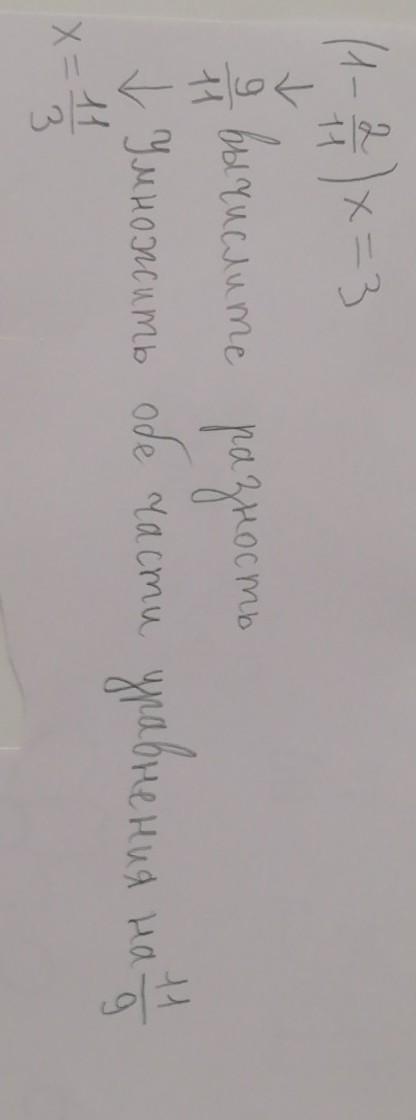 (1 - 2/11) x = 3
↓
9/11 вычислите разность
↓ Умножить обе части уравнения на 11/9
x = 11/3